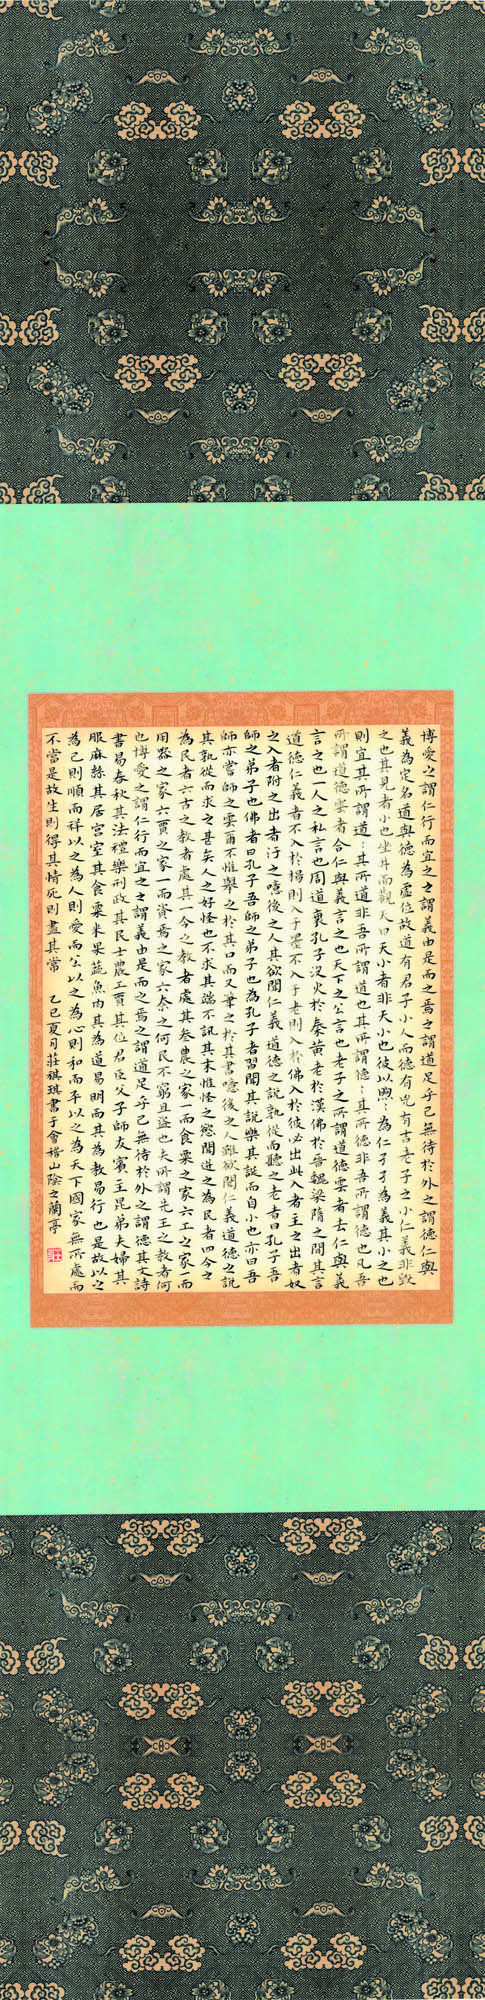 博愛之謂仁行而宜之之謂義由是而之焉之謂道足乎己無待於外之謂德仁與
義為定名道與德為虛位故道有君子小人而德有兇有吉老子之小仁義非毀
之也其見者小也坐井而觀天曰天小者非天小也彼以煦々為仁孑孑為義其小之也
則宜其所謂道々其所道非吾所謂道也其所謂德々其所德非吾所謂德也凡吾
所謂道德雲者合仁與義言之也天下之公言也老子之所謂道德雲者去仁與義
言之也一人之私言也周道衰孔子沒火於秦黃老於漢佛於晉魏梁隋之間其言
道德仁義者不入於楊則入于墨不入于老則入於佛入於彼必出此入者主之出者奴
之入者附之出者汙之噫後之人其欲聞仁義道德之說孰從而聽之老者曰孔子吾
師之弟子也佛者曰孔子吾師之弟子也為孔子者習聞其說樂其誕而自小也亦曰吾
師亦嘗師之雲爾不惟舉之於其口而又筆之於其書噫後之人雖欲聞仁義道德之說
其孰從而求之甚矣人之好怪也不求其端不訊其末惟怪之慾聞道之為民者四今之
為民者六古之教者處其一今之教者處其叁農之家一而食粟之家六工之家一而
用器之家六賈之家一而資焉之家六奈之何民不窮且盜也夫所謂先王之教者何
也博愛之謂仁行而宜之之謂義由是而之焉之謂道足乎己無待於外之謂德其文詩
書易春秋其法禮樂刑政其民士農工賈其位君臣父子師友賓主昆弟夫婦其
服麻絲其居宮室其食粟米果蔬魚肉其為道易明而其為教易行也是故以之
為己則順而祥以之為人則愛而公以之為心則和而平以之為天下國家無所處而
不當是故生則得其情死則盡其常 乙巳夏月莊祺琪書于會稽山陰之蘭亭